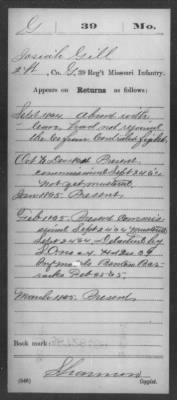 G 39 Mo.
Josiah Gill
2 Lt, Co. G, 39 Reg't Missouri Infantry.
Appears on
Returns as follows:
Sept 1864. Absent with
leave had not rejoined
the Co. from
Oct & Dec 1864 Present
commissioned Sept 24 64
not yet mustered.
Jan 1865. Present.
Feb 1865. Present commis-
sioned Sept 24 64 mustered
Sept 24 64 Detached by
S.O. no
Benton Bar-
racks Feb 25 65.
March 1865. Present
Book mark:
Shannon
(646) Copyist.